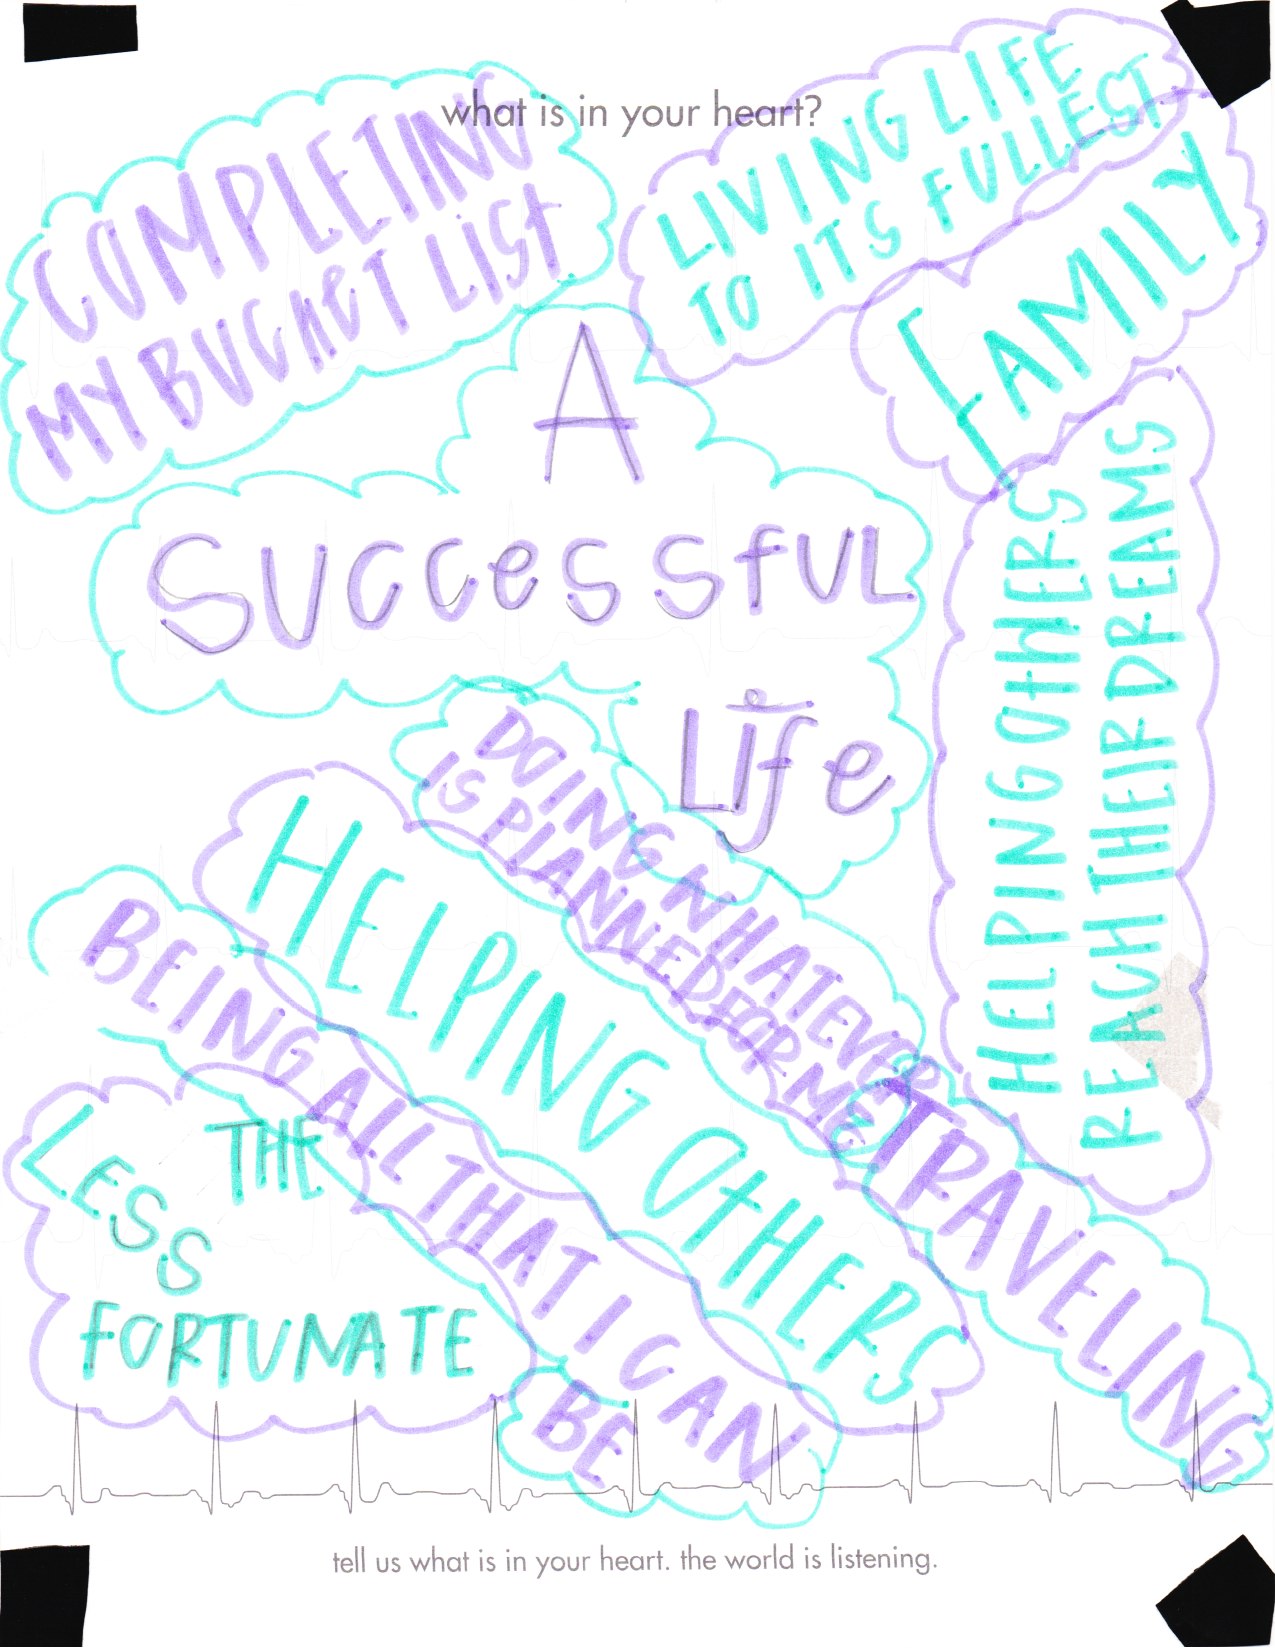 what is in your heart?
COMPLETING
MY BUCKET LIST
LIVING LIFE
TO ITS FULLEST
FAMILY
A
SUCCESSFUL
LIFE
HELPING OTHERS
REACH THEIR DREAMS
DOING WHATEVER
IS PLANNED FOR ME
TRAVELING
HELPING OTHERS
BEING ALL THAT I CAN
BE
THE
LESS
FORTUNATE
tell us what is in your heart. the world is listening.